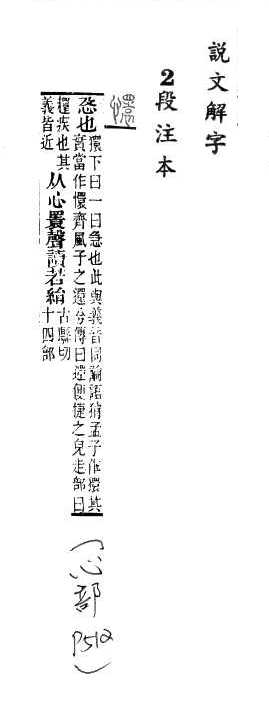 説文解字
2段注本
懁
急也
獧下曰一曰急也此與義音皆同論語狷孟子作獧其
實當作懁齊風子之還兮傳曰還便捷之皃走部曰
疾也其
義皆近
从心瞏聲讀若絹
古縣切
十四部
(心部
P512)